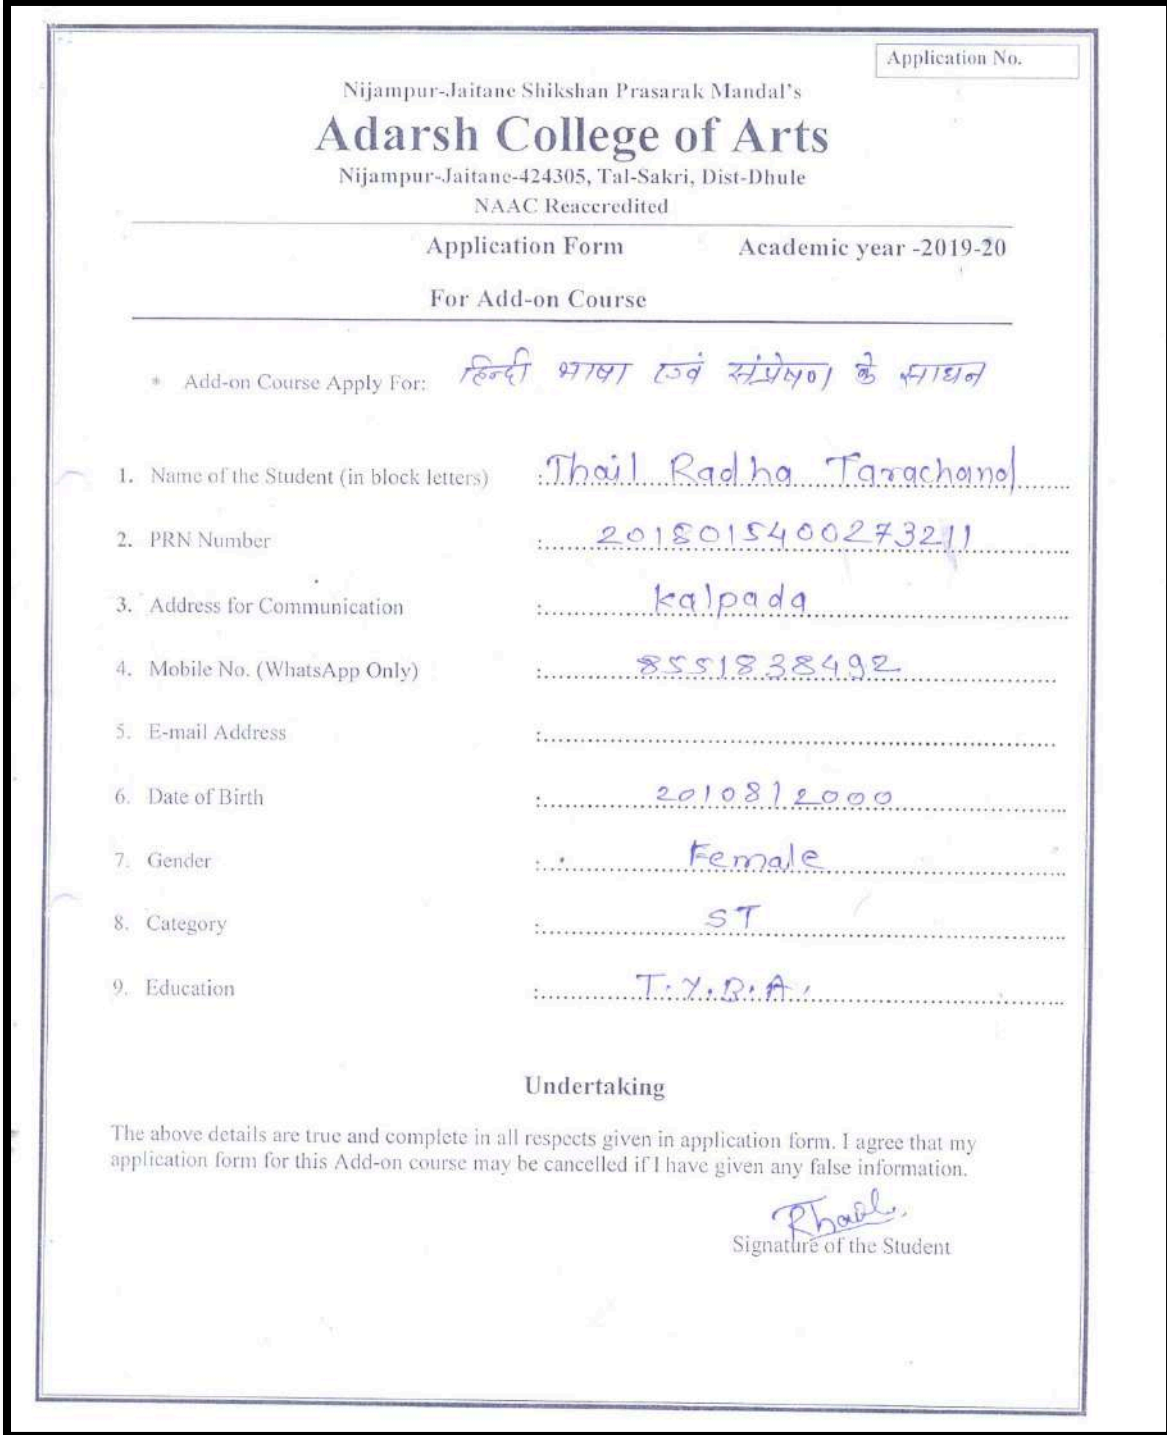 Application No.
Nijampur-Jaitane Shikshan Prasarak Mandal's
Adarsh College of Arts
Nijampur-Jaitane-424305, Tal-Sakri, Dist-Dhule
NAAC Reaccredited
Application Form Academic year -2019-20
For Add-on Course
* Add-on Course Apply For: हिन्दी भाषा एवं संप्रेषण के साधन
1. Name of the Student (in block letters) : Thail Radha Tarachand
2. PRN Number : 2018015400273211
3. Address for Communication : kalpada
4. Mobile No. (WhatsApp Only) : 8551838492
5. E-mail Address :
6. Date of Birth : 20/08/2000
7. Gender : Female
8. Category : ST
9. Education : T.Y.B.A.
Undertaking
The above details are true and complete in all respects given in application form. I agree that my
application form for this Add-on course may be cancelled if I have given any false information.
RThail.
Signature of the Student